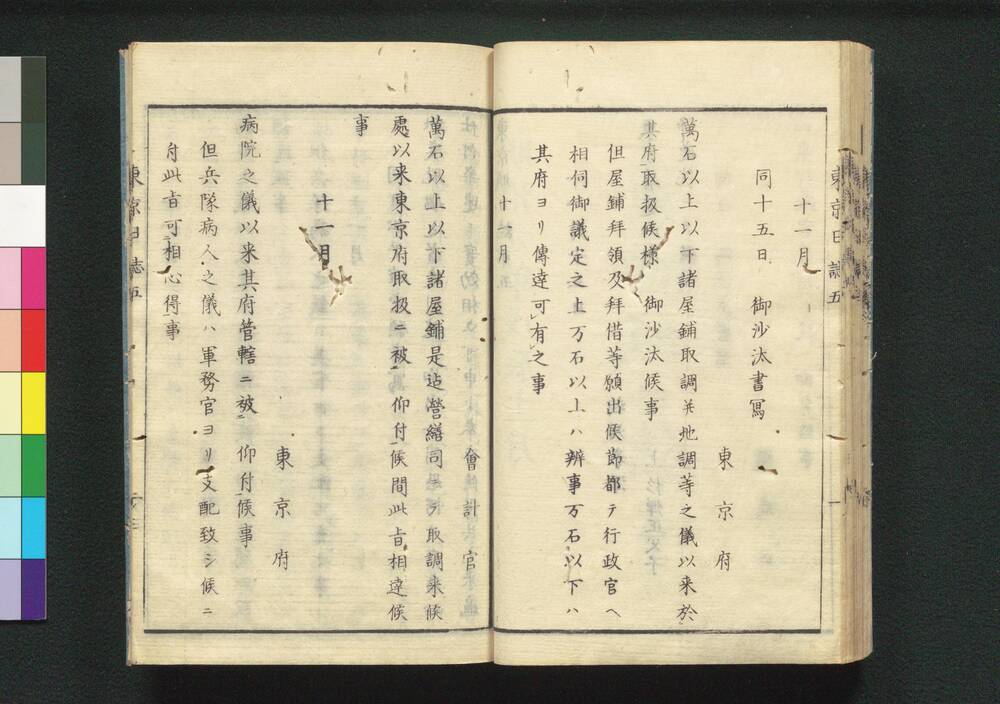 十一月
同十五日 御沙汰書寫
東京府
萬石以上以下諸屋鋪取調并地調等之儀以来於
其府取扱候様 御沙汰候事
但屋鋪拜領及拜借等願出候節都テ行政官へ
相伺御議定之上万石以上ハ辨事万石以下ハ
其府ヨリ傳達可有之事
十一月
會計官
萬石以上以下諸屋鋪是迠營繕司ニテ取調来候
處以来東京府取扱ニ被 仰付候間此旨相達候
事
十一月
東京府
病院之儀以来其府管轄ニ被 仰付候事
但兵隊病人之儀ハ軍務官ヨリ支配致シ候ニ
付此旨可相心得事
東京日誌五
東京日誌五